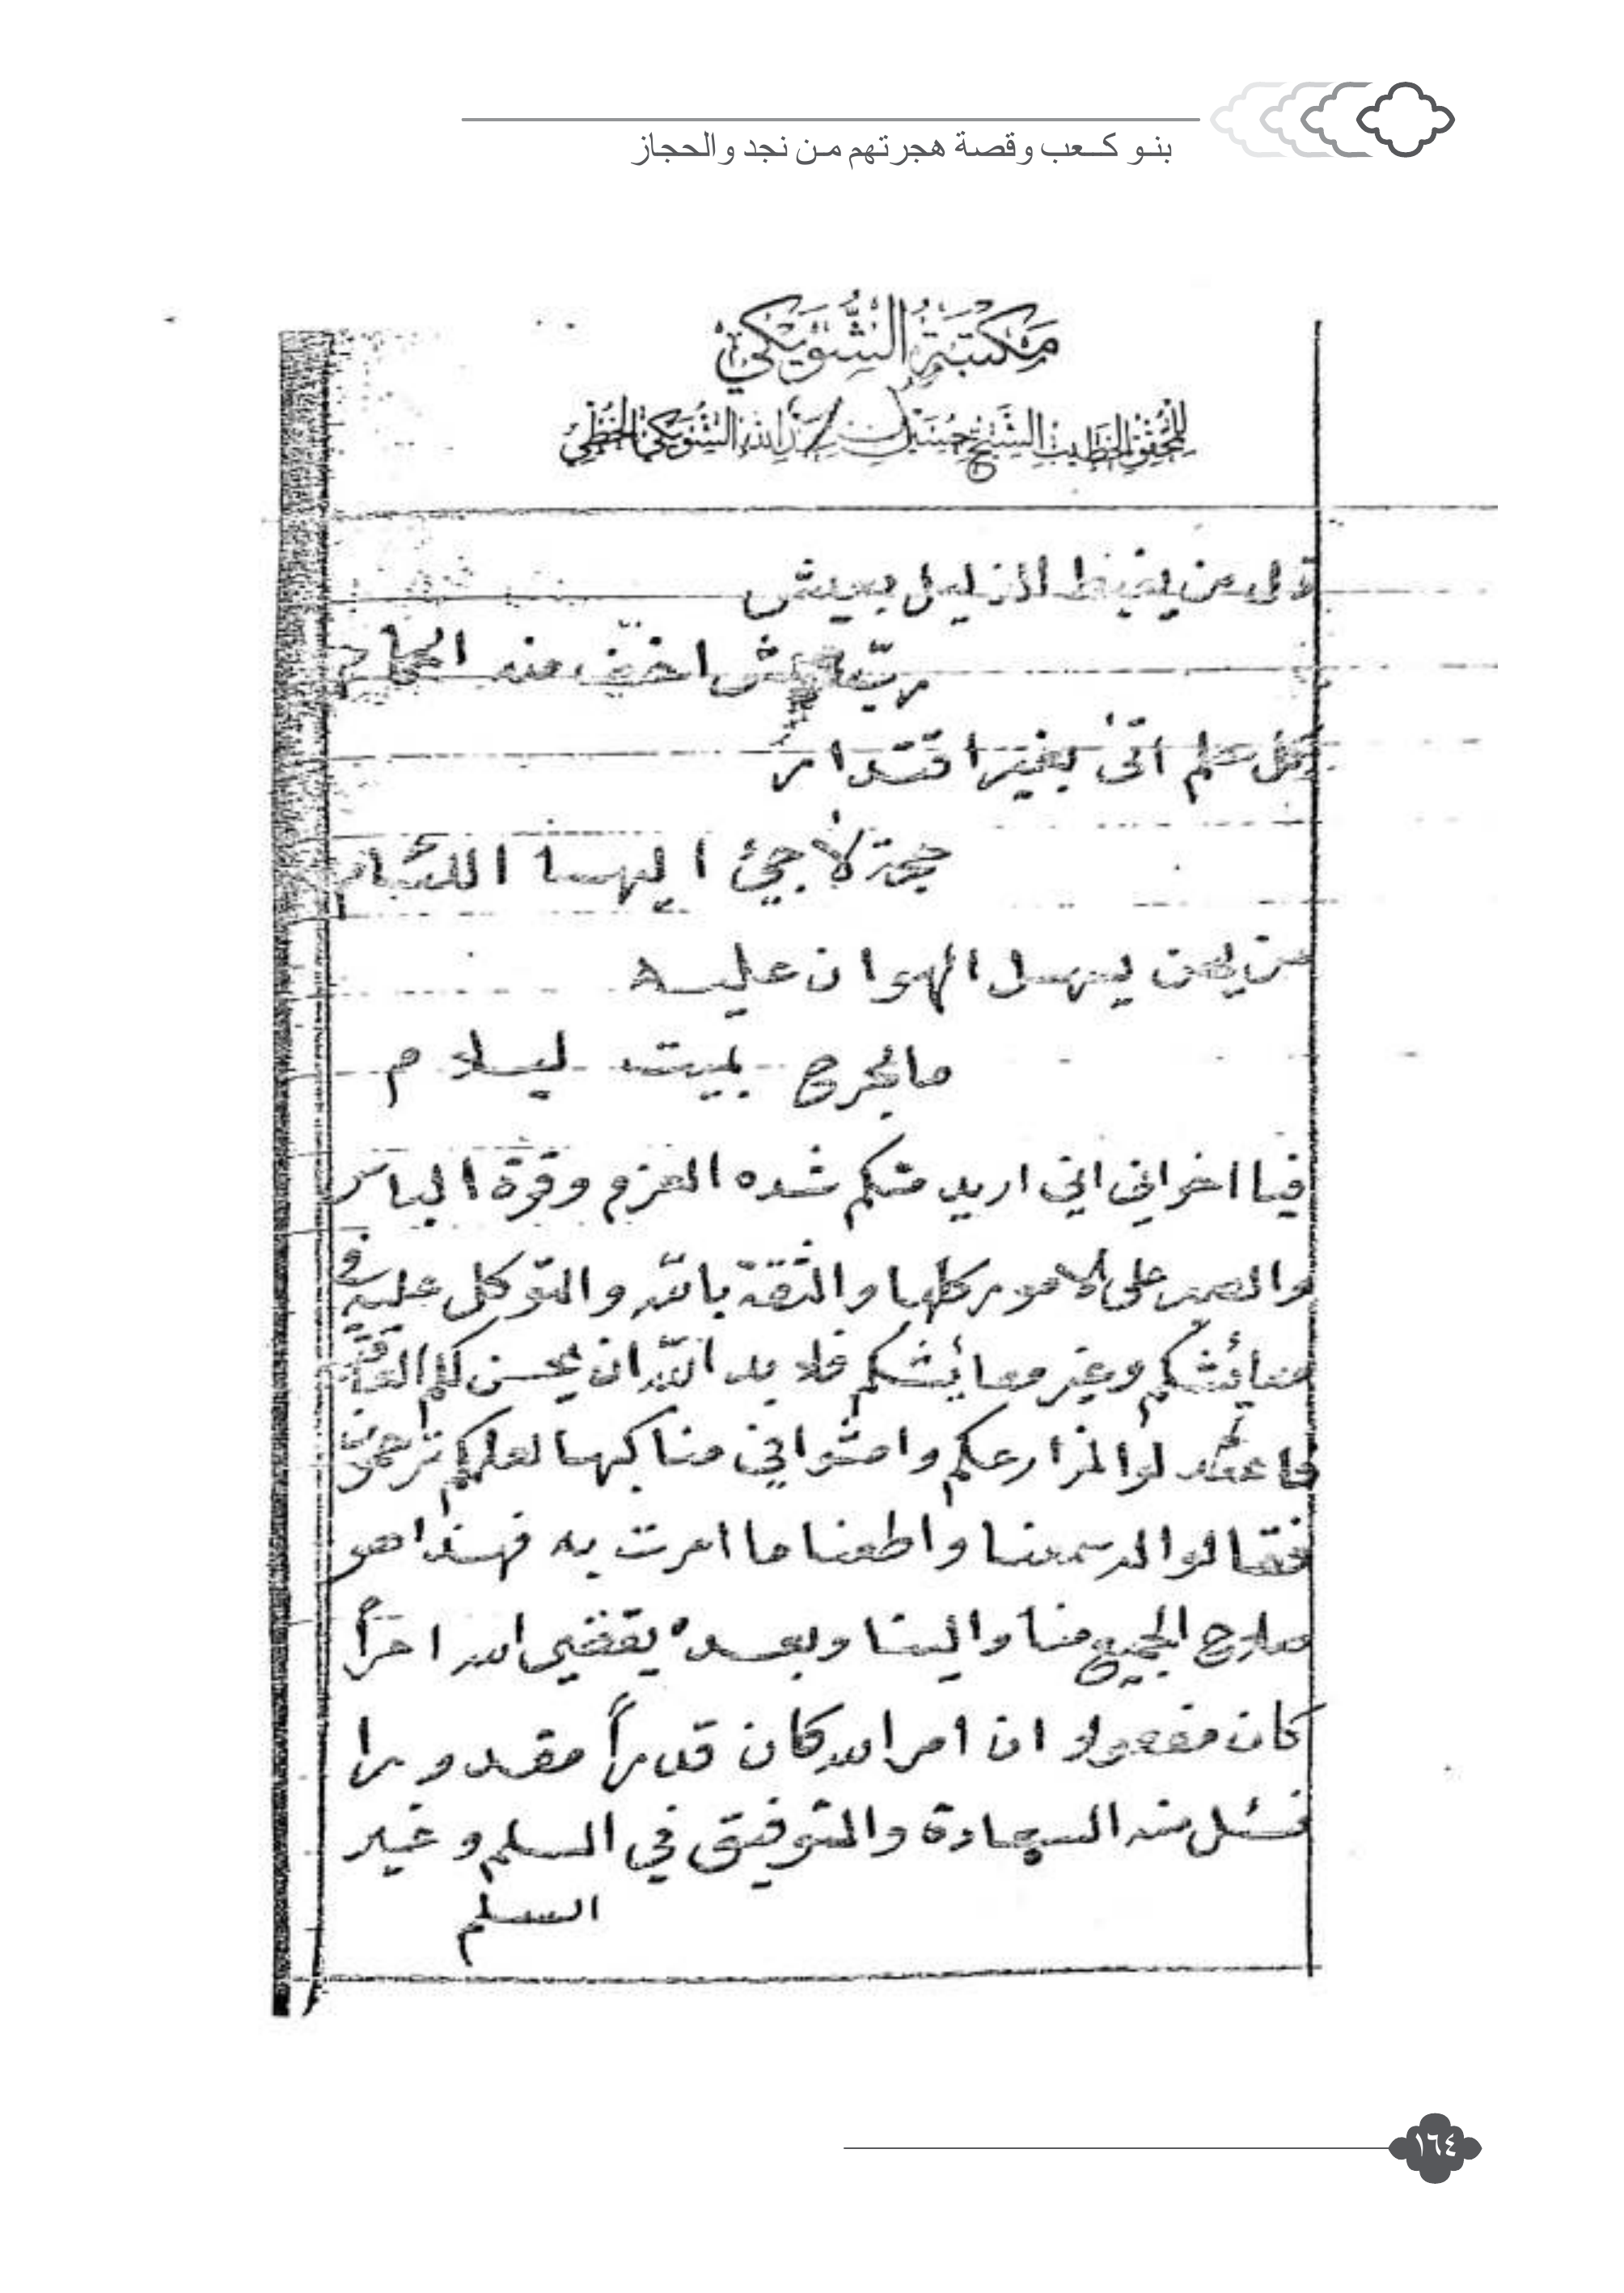 بنو كعب وقصة هجرتهم من نجد والحجاز
مَكتَبَةُ الشُّوَيكي
للمُحَقِّقِ الخَطيبِ الشَّيخِ حُسَين بن عبدالله الشُّوَيكي الخَطِّي
ذل من يغبط الذليل بعيش
ربّ عيش اخفّ منه الحمام
كل حلم اتى بغير اقتدار
حجة لاجئ اليها اللئام
من يهن يسهل الهوان عليه
ما لجرح بميت ليلام
فيا اخواني اني اريد منكم شده العزم وقوة الباس
والصبر على الامور كلها والثقة بالله والتوكل عليه في
معائشكم وغير معائشكم فلا بد الله ان يحسن لكم العاقبة
لمزارعكم وامشوا في مناكبها لعلكم ترحمون
فقالوا له سمعنا واطعنا ما امرت به فهذا هو
صلاح الجميع منا والينا وبعده يقضي الله امراً
كان مفعولا ان امر الله كان قدراً مقدورا
فنسئل منه السعادة والتوفيق في السلم وغير
السلم
١٦٤